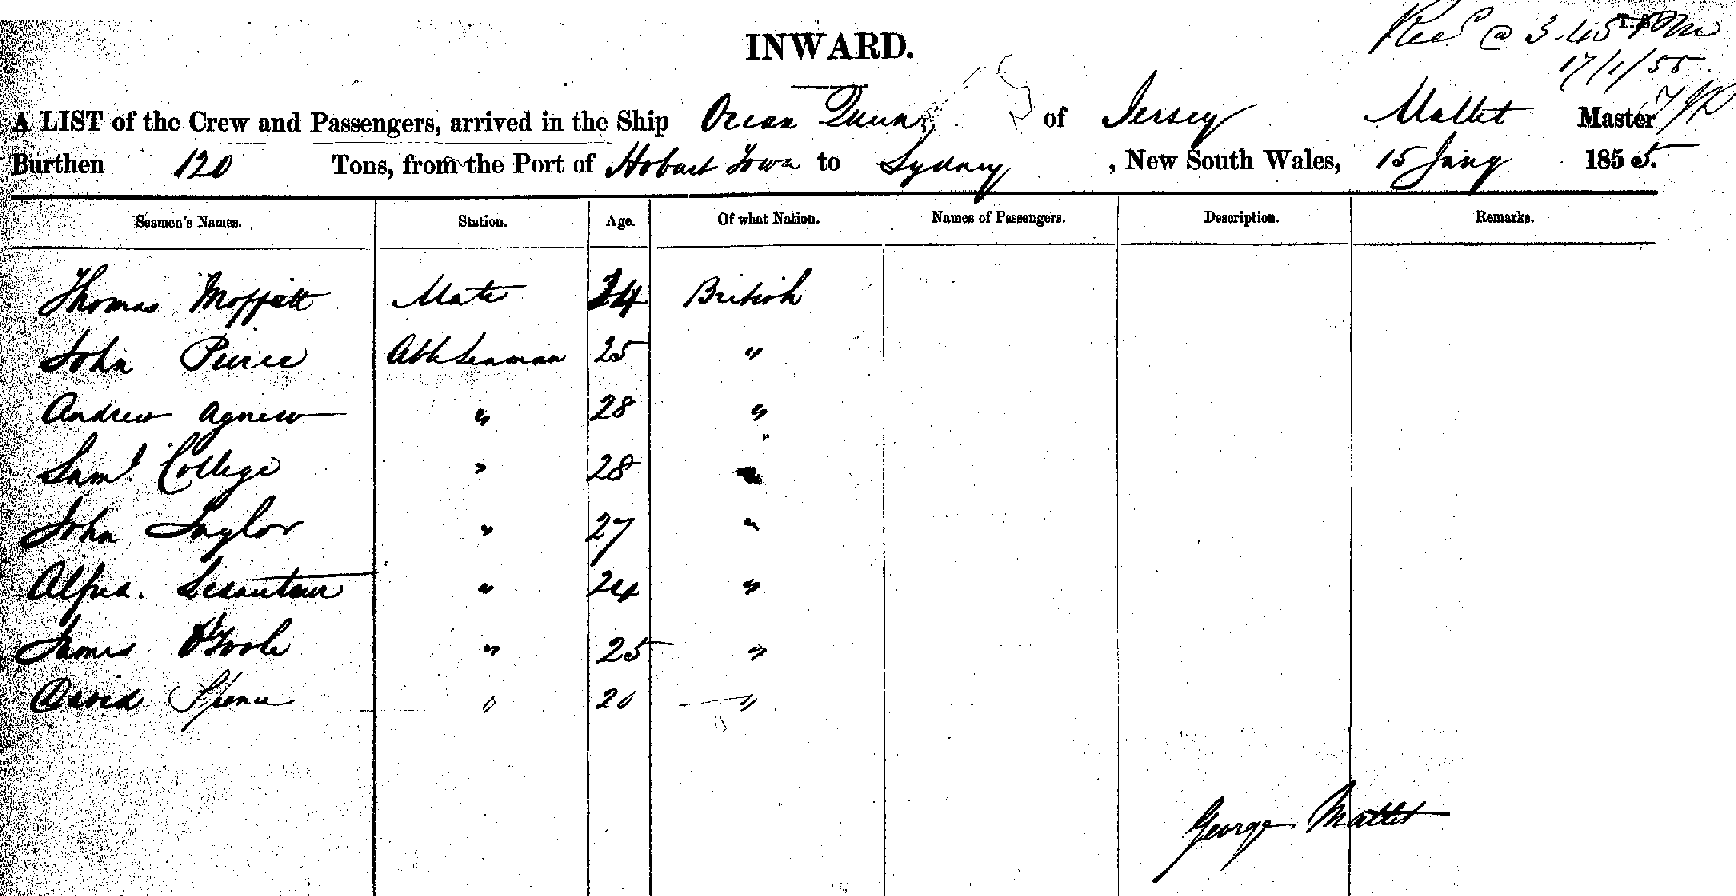 Recd @ 3.45 PM
17/1/55
INWARD.
A LIST of the Crew and Passengers, arrived in the Ship Ocean Queen of Jersey Mallet Master
Burthen 120 Tons, from the Port of Hobart Town to Sydney, New South Wales, 15 Jany 1855.
Seamen's Names. Station. Age. Of what Nation. Names of Passengers. Description. Remarks.
Thomas Moffatt Mate 24 British
John Pierce Able Seaman 25 "
Andrew Agnew " 28 "
Saml. College " 28 "
John Taylor " 27 "
Alfred. Lesauteur " 24 "
James O'Toole " 25 "
David Spence " 20 "
George Mallet